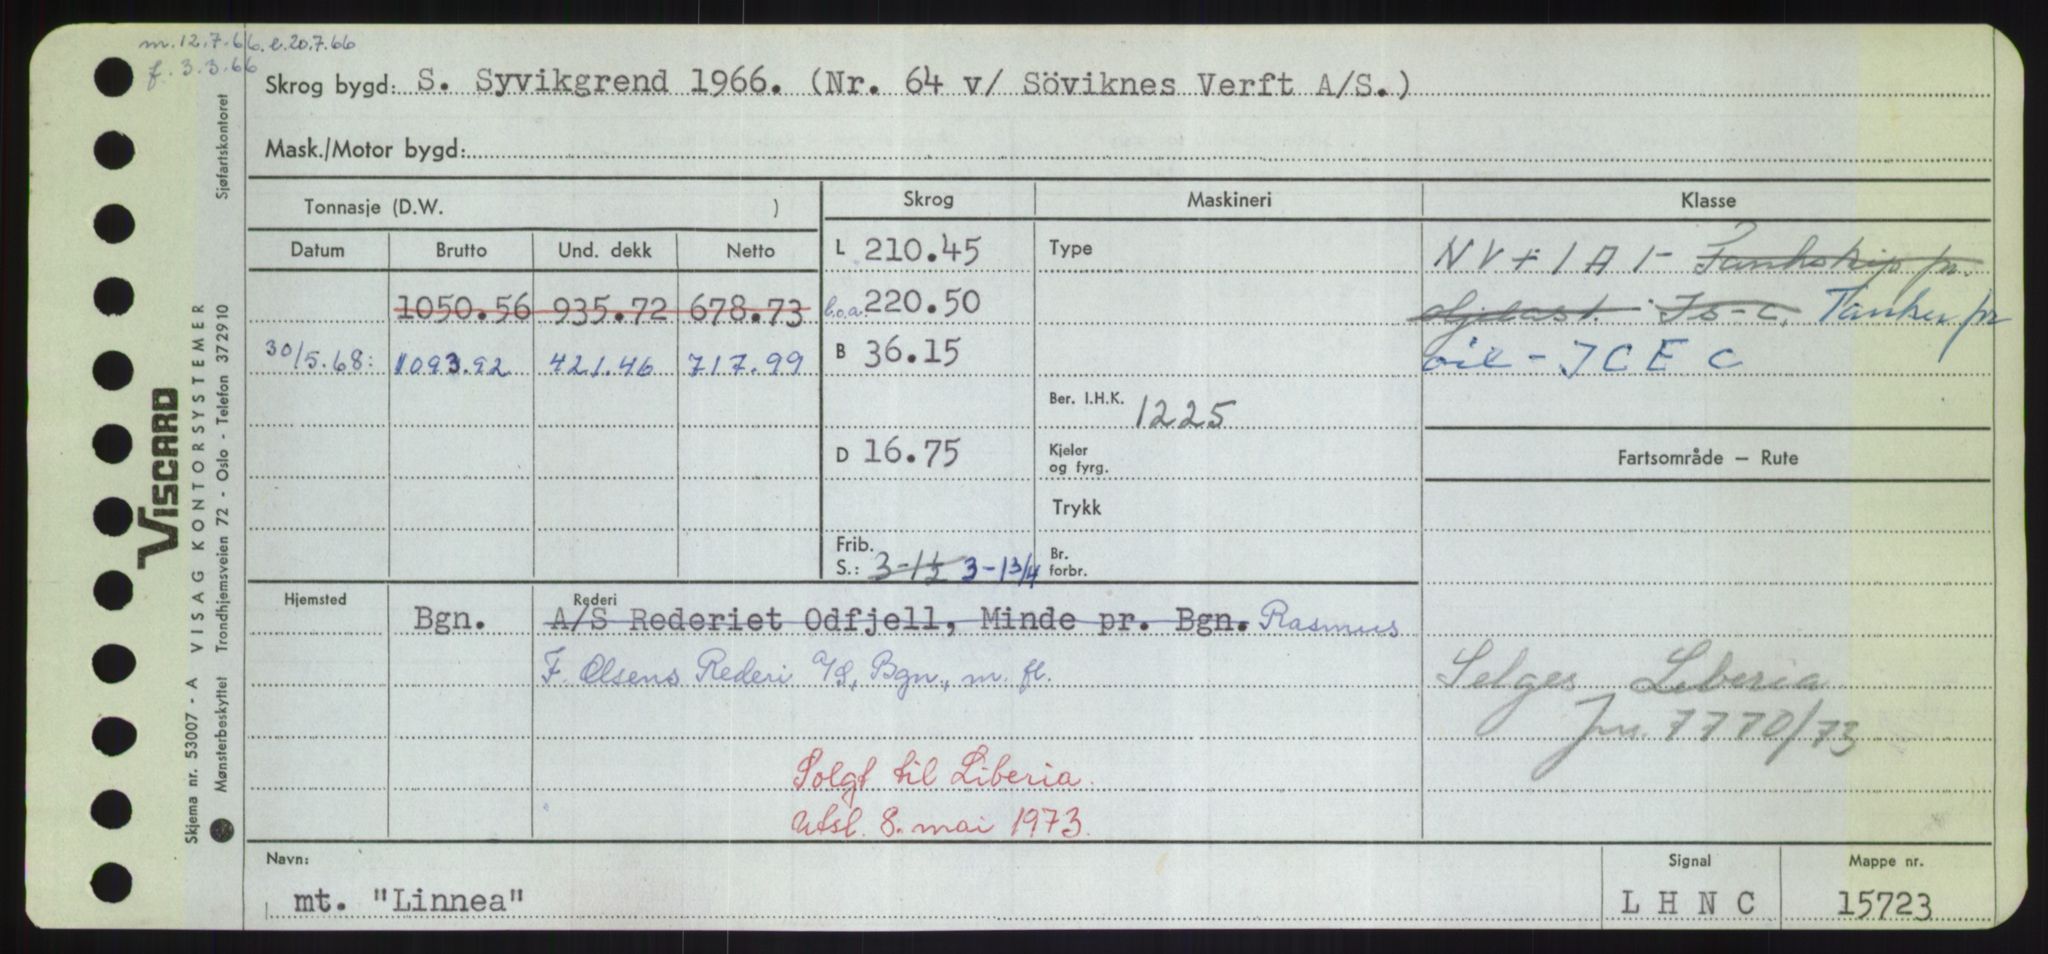 m. 12.7.66. e. 20.7.66
f. 3.3.66
Skrog bygd: S. Syvikgrend 1966. (Nr. 64 v/ Söviknes Verft A/S.)
Mask./Motor bygd:
Tonnasje (D.W. )
Skrog
Maskineri
Klasse
Datum
Brutto
Und. dekk
Netto
L 210.45
Type
NV + 1 A 1 - Tankskip pr.
1050.56 935.72 678.73
l.o.a. 220.50
oljelast. Is-C. Tanker for
30/5.68: 1093.92 421.46 717.99
B 36.15
oil - ICE C
Ber. I.H.K. 1225
D 16.75
Kjeler
og fyrg.
Fartsområde – Rute
Trykk
Frib.
S.: 3-1½ 3-1 3/4
Br.
forbr.
Hjemsted
Bgn.
Rederi
A/S Rederiet Odfjell, Minde pr. Bgn. Rasmus
F. Olsens Rederi A/S, Bgn., m. fl.
Selges Liberia
jnr. 7770/73
Solgt til Liberia.
Utsl. 8. mai 1973.
Navn:
mt. "Linnea"
Signal
L H N C
Mappe nr.
15723
VISCARD
Skjema nr. 53007 - A VISAG KONTORSYSTEMER
Mønsterbeskyttet Trondhjemsveien 72 - Oslo - Telefon 372910 Sjøfartskontoret